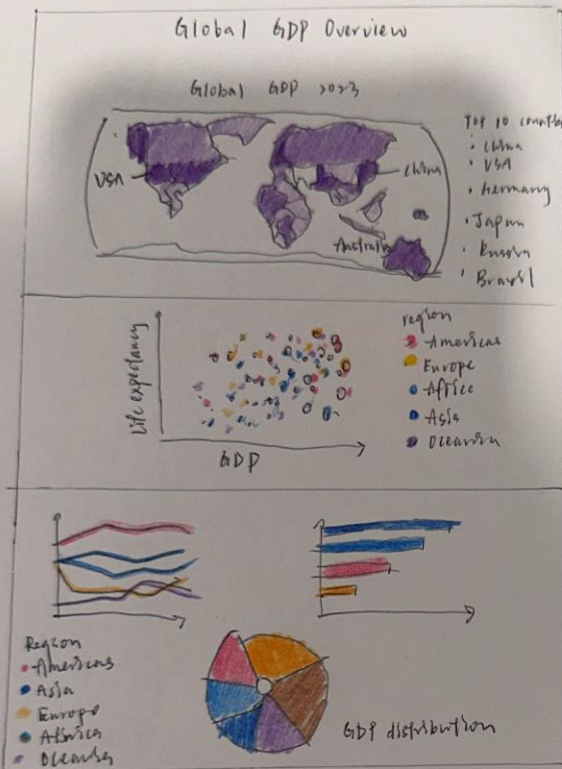 Global GDP Overview
Global GDP 2023
USA
China
Australia
Top 10 countries
China
USA
Germany
Japan
Russia
Brazil
Life expectancy
GDP
region
Americas
Europe
Africa
Asia
Oceania
Region
Americas
Asia
Europe
Africa
Oceania
GDP distribution